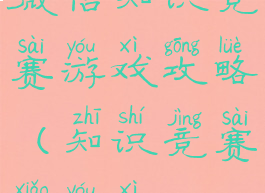 微信知识竞
sài yóu xì gōng lüè
赛游戏攻略
zhī shí jìng sài
（知识竞赛
xiǎo yóu xì